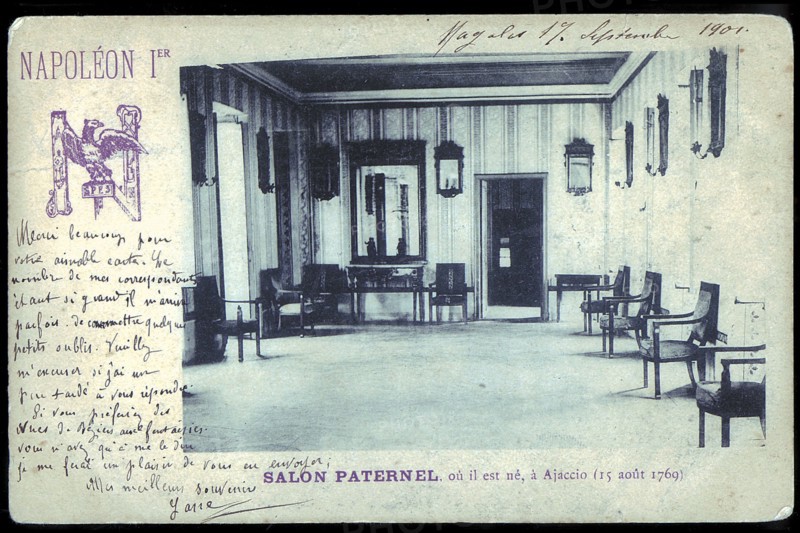 Magalas 17 Septembre 1901.
NAPOLÉON IER
R.F.F.S
Merci beaucoup pour
votre aimable carte. Le
nombre de mes correspondants
étant si grand il m'arrive
parfois de commettre quelques
petits oublis. Veuillez
m'excuser si j'ai un
peu tardé à vous répondre.
Si vous préférez des
vues de Béziers aux fantaisies
vous n'avez qu'à me le dire
je me ferai un plaisir de vous en envoyer;
Mes meilleurs souvenirs
SALON PATERNEL. où il est né, à Ajaccio (15 août 1769)